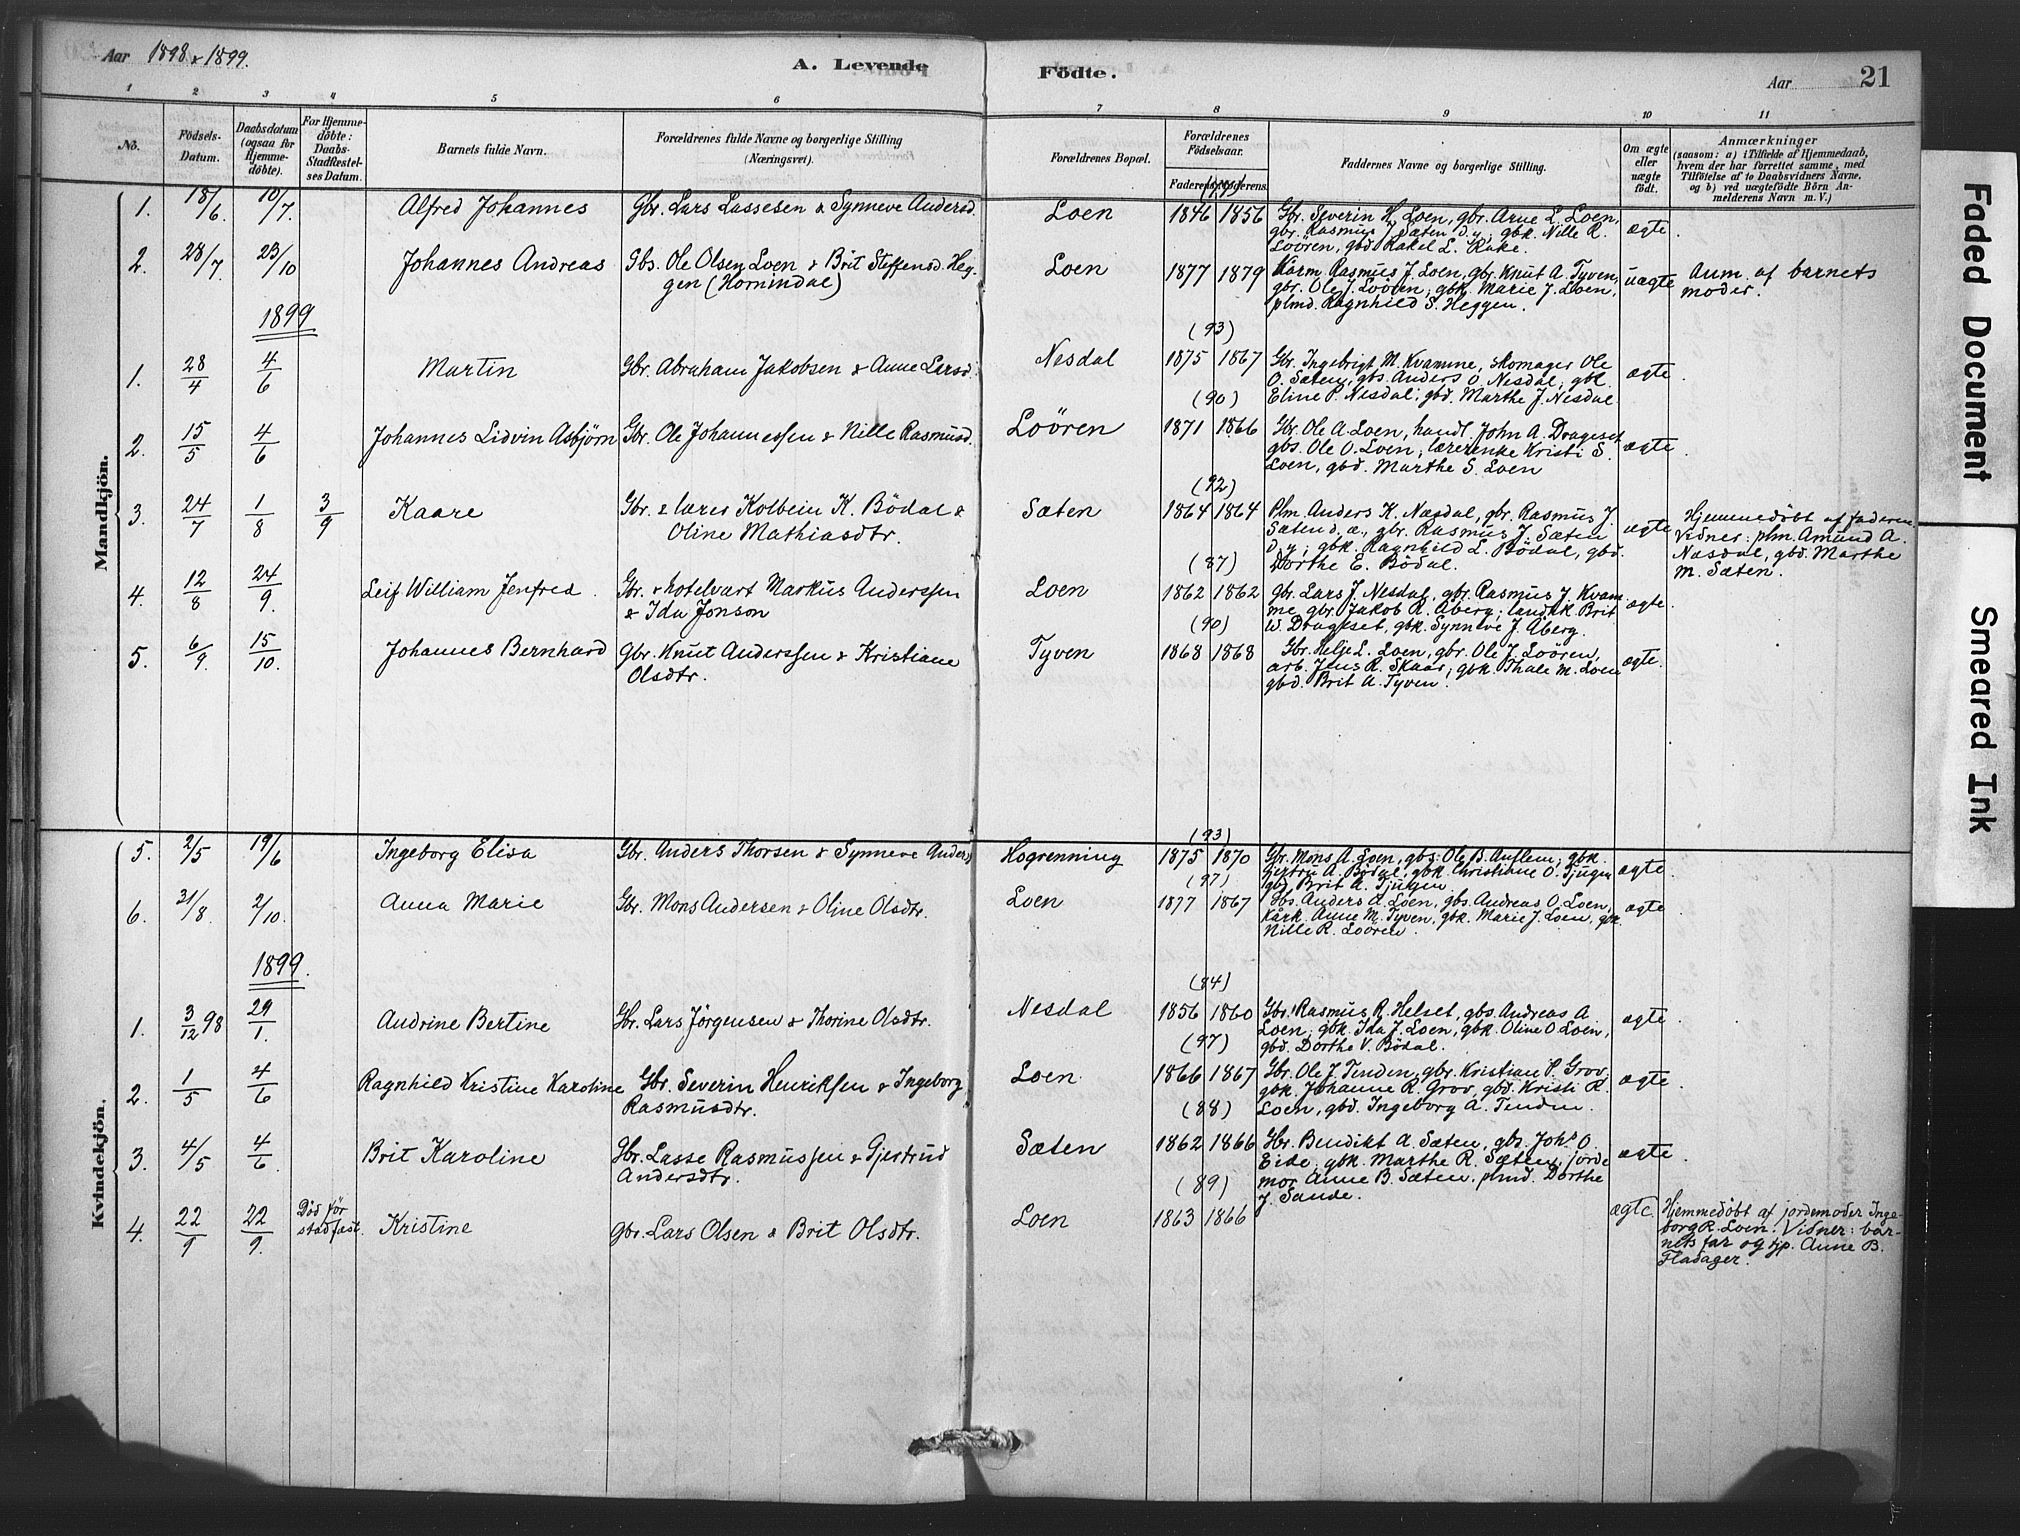 Aar 1898 & 1899.
A. Levende Födte.
Aar 21
1 2 3 4 5 6 7 8 9 10 11
No.
Födsels-Datum.
Daabsdatum (ogsaa for Hjemmedöbte).
For Hjemmedöbte: Daabs-Stadfæstelses Datum.
Barnets fulde Navn.
Forældrenes fulde Navne og borgerlige Stilling (Næringsvei).
Forældrenes Bopæl.
Forældrenes Födselsaar.
Faderens. Moderens.
Faddernes Navne og borgerlige Stilling.
Om ægte eller uægte födt.
Anmærkninger
(saasom: a) i Tilfælde af Hjemmedaab,
hvem der har forrettet samme, med
Tilföielse af to Daabsvidners Navne,
og b) ved uægtefödte Börn An-
melderens Navn m. V.)
Mandkjön.
1. 18/6. 10/7. Alfred Johannes Gbr. Lars Lassesen & Synneve Andersd. Loen 1846 1856 Gbr. Severin H. Loen, gbr. Arne L. Loen,
gbr. Rasmus J. Sæten d.y.; gbk. Nille R.
Loören, gbd. Rakel L. Rake. ægte.
2. 28/7. 23/10 Johannes Andreas Gbs. Ole Olsen Loen & Brit Steffensd. Heg-
gen (Hornindal) Loen 1877 1879 Karm. Rasmus J. Loen, gbr. Knut A. Tyven,
gbr. Ole J. Loören; gbk. Marie J. Loen,
plmd. Ragnhild S. Heggen. uægte Anm. af barnets
moder.
1899
(93)
1. 28/4 4/6 Martin Gbr. Abraham Jakobsen & Anne Larsd. Nesdal 1875 1867 Gbr. Ingebrigt M. Kvamme, skomager Ole
O. Sæten, gbs. Anders O. Nesdal; gbk.
Eline P. Nesdal; gbd. Marthe J. Nesdal ægte.
(90)
2. 15/5 4/6 Johannes Lidvin Asbjörn Gbr. Ole Johannessen & Nille Rasmusd. Loören 1871 1866 Gbr. Ole A. Loen, handl. John A. Drageset
gbs. Ole O. Loen; lærerenke Kristi S.
Loen, gbd. Marthe S. Loen ægte.
(92)
3. 24/7 1/8 3/9 Kaare Gbr. & lærer Kolbein K. Bödal &
Oline Mathiasdtr. Sæten 1864 1864 Plm. Anders K. Næsdal, gbr. Rasmus J.
Sæten d.æ., gbr. Rasmus J. Sæten
d.y.; gbk. Ragnhild L. Bödal, gbd.
Dorthe E. Bödal. ægte Hjemmedöbt af faderen
Vidner: plm. Amund A.
Næsdal, gbd. Marthe
M. Sæten.
(87)
4. 12/8 24/9. Leif William Jenfred. Gbr. & hotelvært Markus Anderssen
& Ida Jonson Loen 1862 1862 Gbr. Lars J. Nesdal, gbr. Rasmus J. Kvam-
me, gbr. Jakob R. Aberg; landhk. Brit
W. Drageset, gbk. Synneve J. Aberg. ægte.
(90)
5. 6/9 15/10. Johannes Bernhard Gbr. Knut Anderssen & Kristiane
Olsdtr. Tyven 1868 1868 Gbr. Helje L. Loen, gbr. Ole J. Loören,
arb. Jens R. Skaar; gbk. Thale M. Loen
gbd. Brit A. Tyven. ægte.
Kvindekjön.
(93)
5. 2/5 19/6 Ingeborg Elisa Gbr. Anders Thorsen & Synneve Andersd. Hogrenning 1875 1870 Gbr. Mons A. Loen, gbs. Ole B. Auflem; gbk.
Gjertru A. Bödal, gbk. Christiane O. Tjugen
gbd. Brit A. Tjugen ægte.
(97)
6. 31/8. 2/10. Anna Marie Gbr. Mons Andersen & Oline Olsdtr. Loen 1877 1867 Gbs. Anders A. Loen, gbs. Andreas O. Loen,
Kårk. Anne M. Tyven, gbk. Marie J. Loen, gbk.
Nille R. Loören. ægte
1899.
(84)
1. 3/12 98 29/1. Andrine Bertine Gbr. Lars Jörgensen & Thorine Olsdtr. Nesdal 1856 1860 Gbr. Rasmus R. Helset, gbs. Andreas A.
Loen; gbk. Ida J. Loen, gbk. Oline O. Loen,
gbd. Dorthe V. Bödal. ægte.
(97)
2. 1/5 4/6 Ragnhild Kristine Karoline Gbr. Severin Henriksen & Ingeborg
Rasmusdtr. Loen 1866 1867 Gbr. Ole J. Tinden, gbr. Kristian P. Grov
gbk. Johanne R. Grov, gbd. Kristi R.
Loen, gbd. Ingeborg A. Tinden. ægte.
(88)
3. 4/5 4/6. Brit Karoline Gbr. Lasse Rasmussen & Gjertrud
Andersdtr. Sæten 1862 1866 Gbr. Bendikt A. Sæten, gbs. Johs O.
Eide; gbk. Marthe R. Sæten, jorde
mor Anne B. Sæten. plmd. Dorthe
J. Sande. ægte.
(89)
4. 22/9 22/9. Död för
stadfæst. Kristine Gbr. Lars Olsen & Brit Olsdtr. Loen 1863 1866 ægte. Hjemmedöbt af jordemoder Inge-
borg R. Loen. Vidner: bar-
nets far og tjp. Anne B.
Fladager.
Faded Document
Smeared Ink